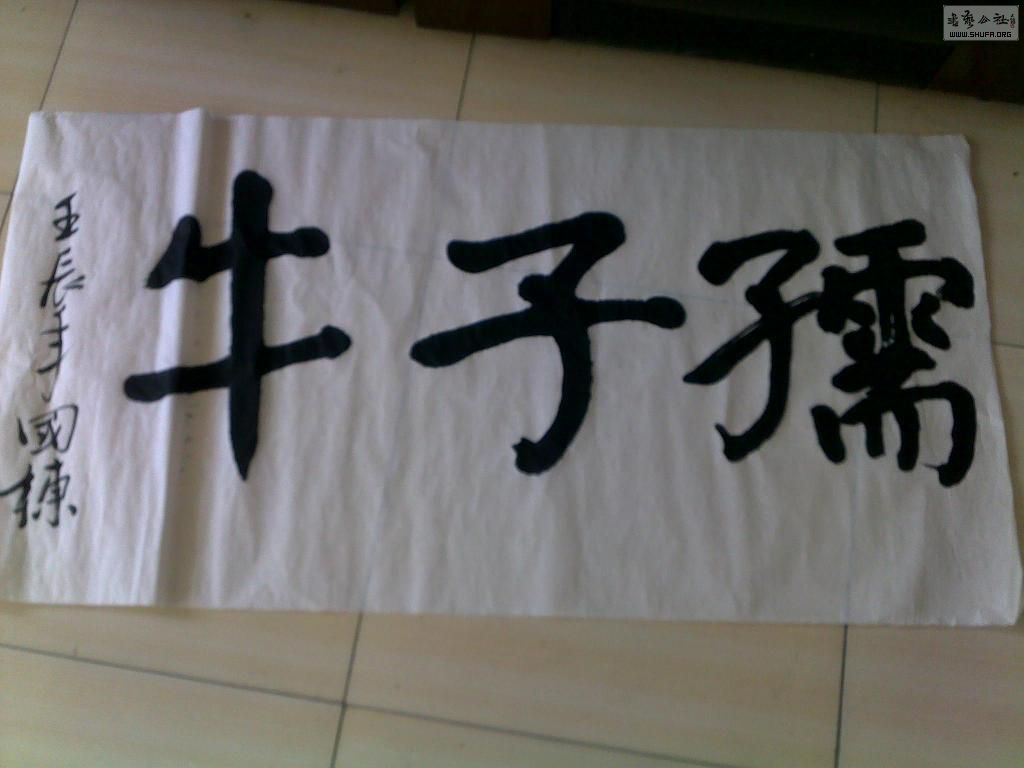 孺子牛
壬辰年國棟
书艺公社
WWW.SHUFA.ORG